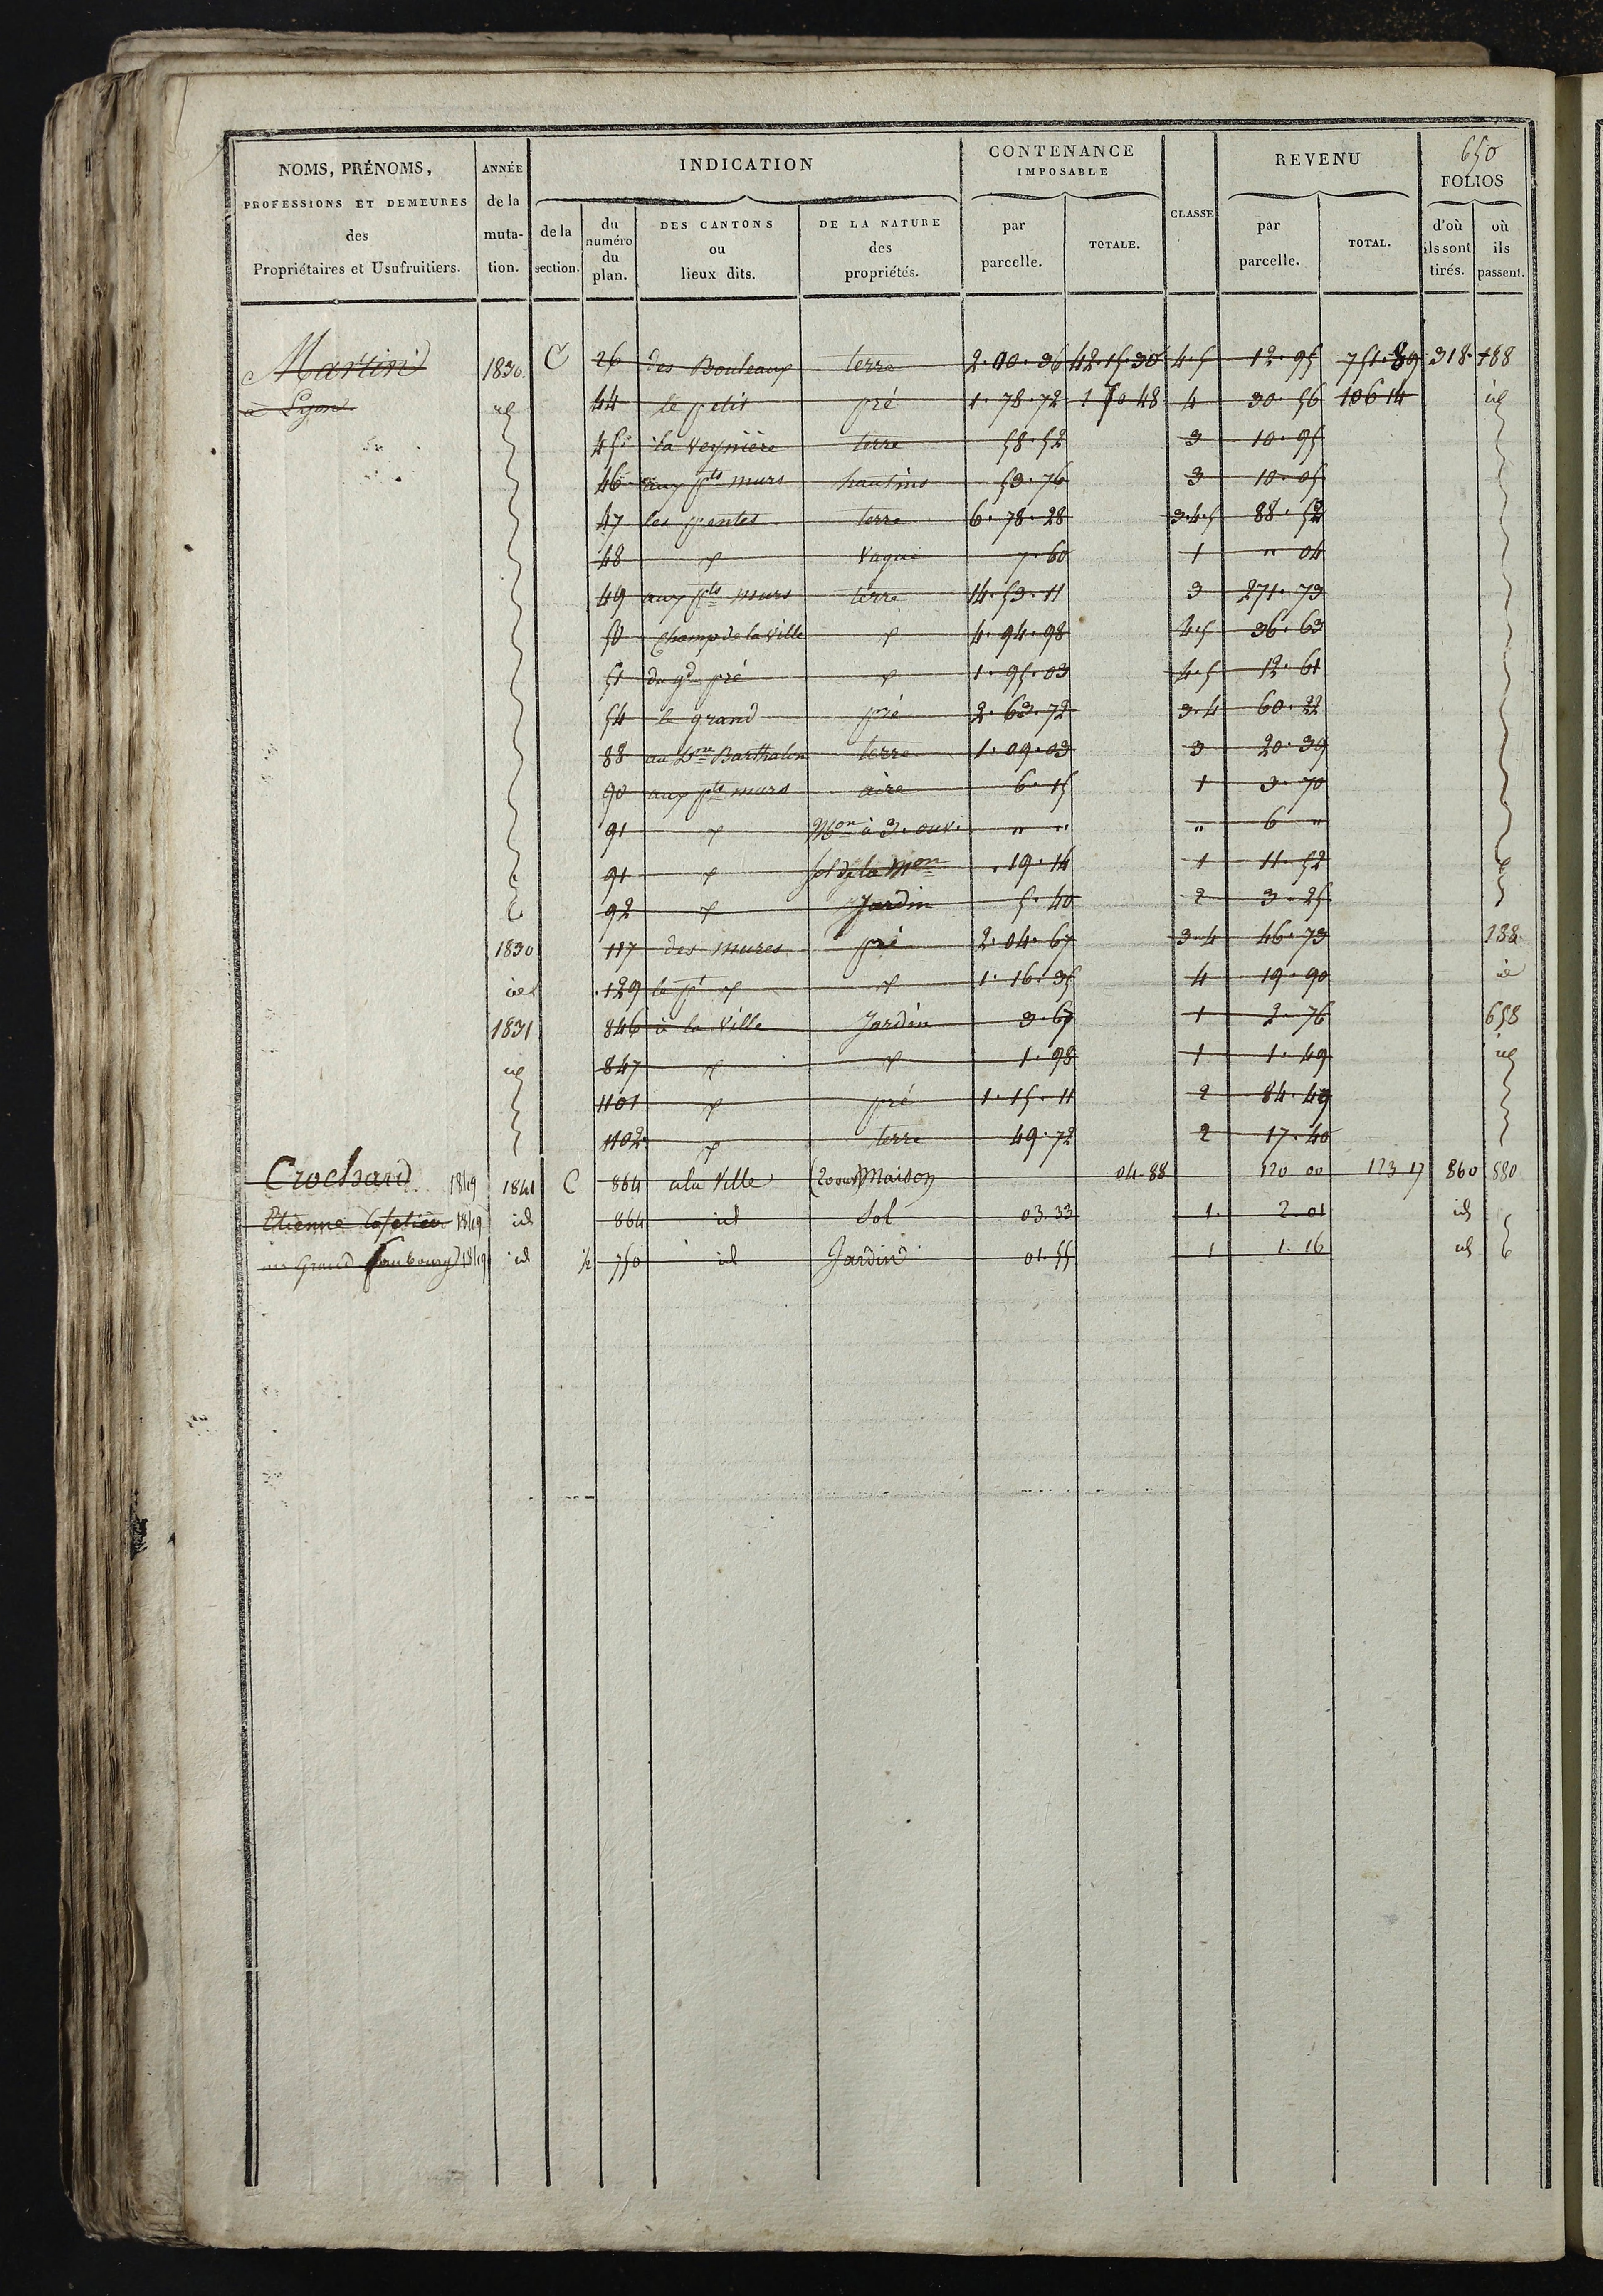 650
NOMS, PRÉNOMS, PROFESSIONS ET DEMEURES des Propriétaires et Usufruitiers.
ANNÉE de la muta- tion.
INDICATION
de la section.
du numéro du plan.
DES CANTONS ou lieux dits.
DE LA NATURE des propriétés.
CONTENANCE IMPOSABLE
par parcelle.
TOTALE.
CLASSE
REVENU
par parcelle.
TOTAL.
FOLIOS
d'où ils sont tirés.
où ils passent.
Martin 1830 C 26 des Bouleaux terre 2.00.36 42.15.30 4.5 12.95 751.89 318 188
à Lyon id 44 le petit pré 1.78.72 1 70 48 4 30.56 106 14 id
45 la Veynière terre 58.52 3 10.95
46 aux pts murs hautins 53.76 3 10.05
47 les pentes terre 6.78.28 3.4.5 88.52
48 Vague 7.60 1 " 04
49 aux pts murs terre 14.53.11 3 271.73
50 Champ de la Ville 4.94.98 4.5 36.63
51 du gd pré 1.95.03 4.5 12.61
54 le grand pré 2.63.72 3.4 60.22
88 au Barthalon terre 1.09.03 3 20.39
90 aux pts murs aire 6.15 1 3.70
91 Mon à 3. ouv. " " " 6 "
91 sol de la Mon 19.14 1 11.52
92 Jardin 5.40 2 3.25
1830 117 des mures pré 2.04.67 3.4 46.73 138
id 129 le pt 1.16.35 4 19.90 id
1831 846 à la Ville Jardin 3.67 1 2.76 658
id 847 1.98 1 1.49 id
1101 pré 1.15.11 2 84.49
1102 terre 49.72 2 17.40
Crochard 1849 1841 C 864 a la Ville (20 out) Maison 04.88 120 00 123 17 860 880
Etienne Cafetier 1849 id 864 id Sol 03.33 1. 2.01 id
au Grand Faubourg 1849 id ½ 750 id Jardin 01.55 1 1.16 id